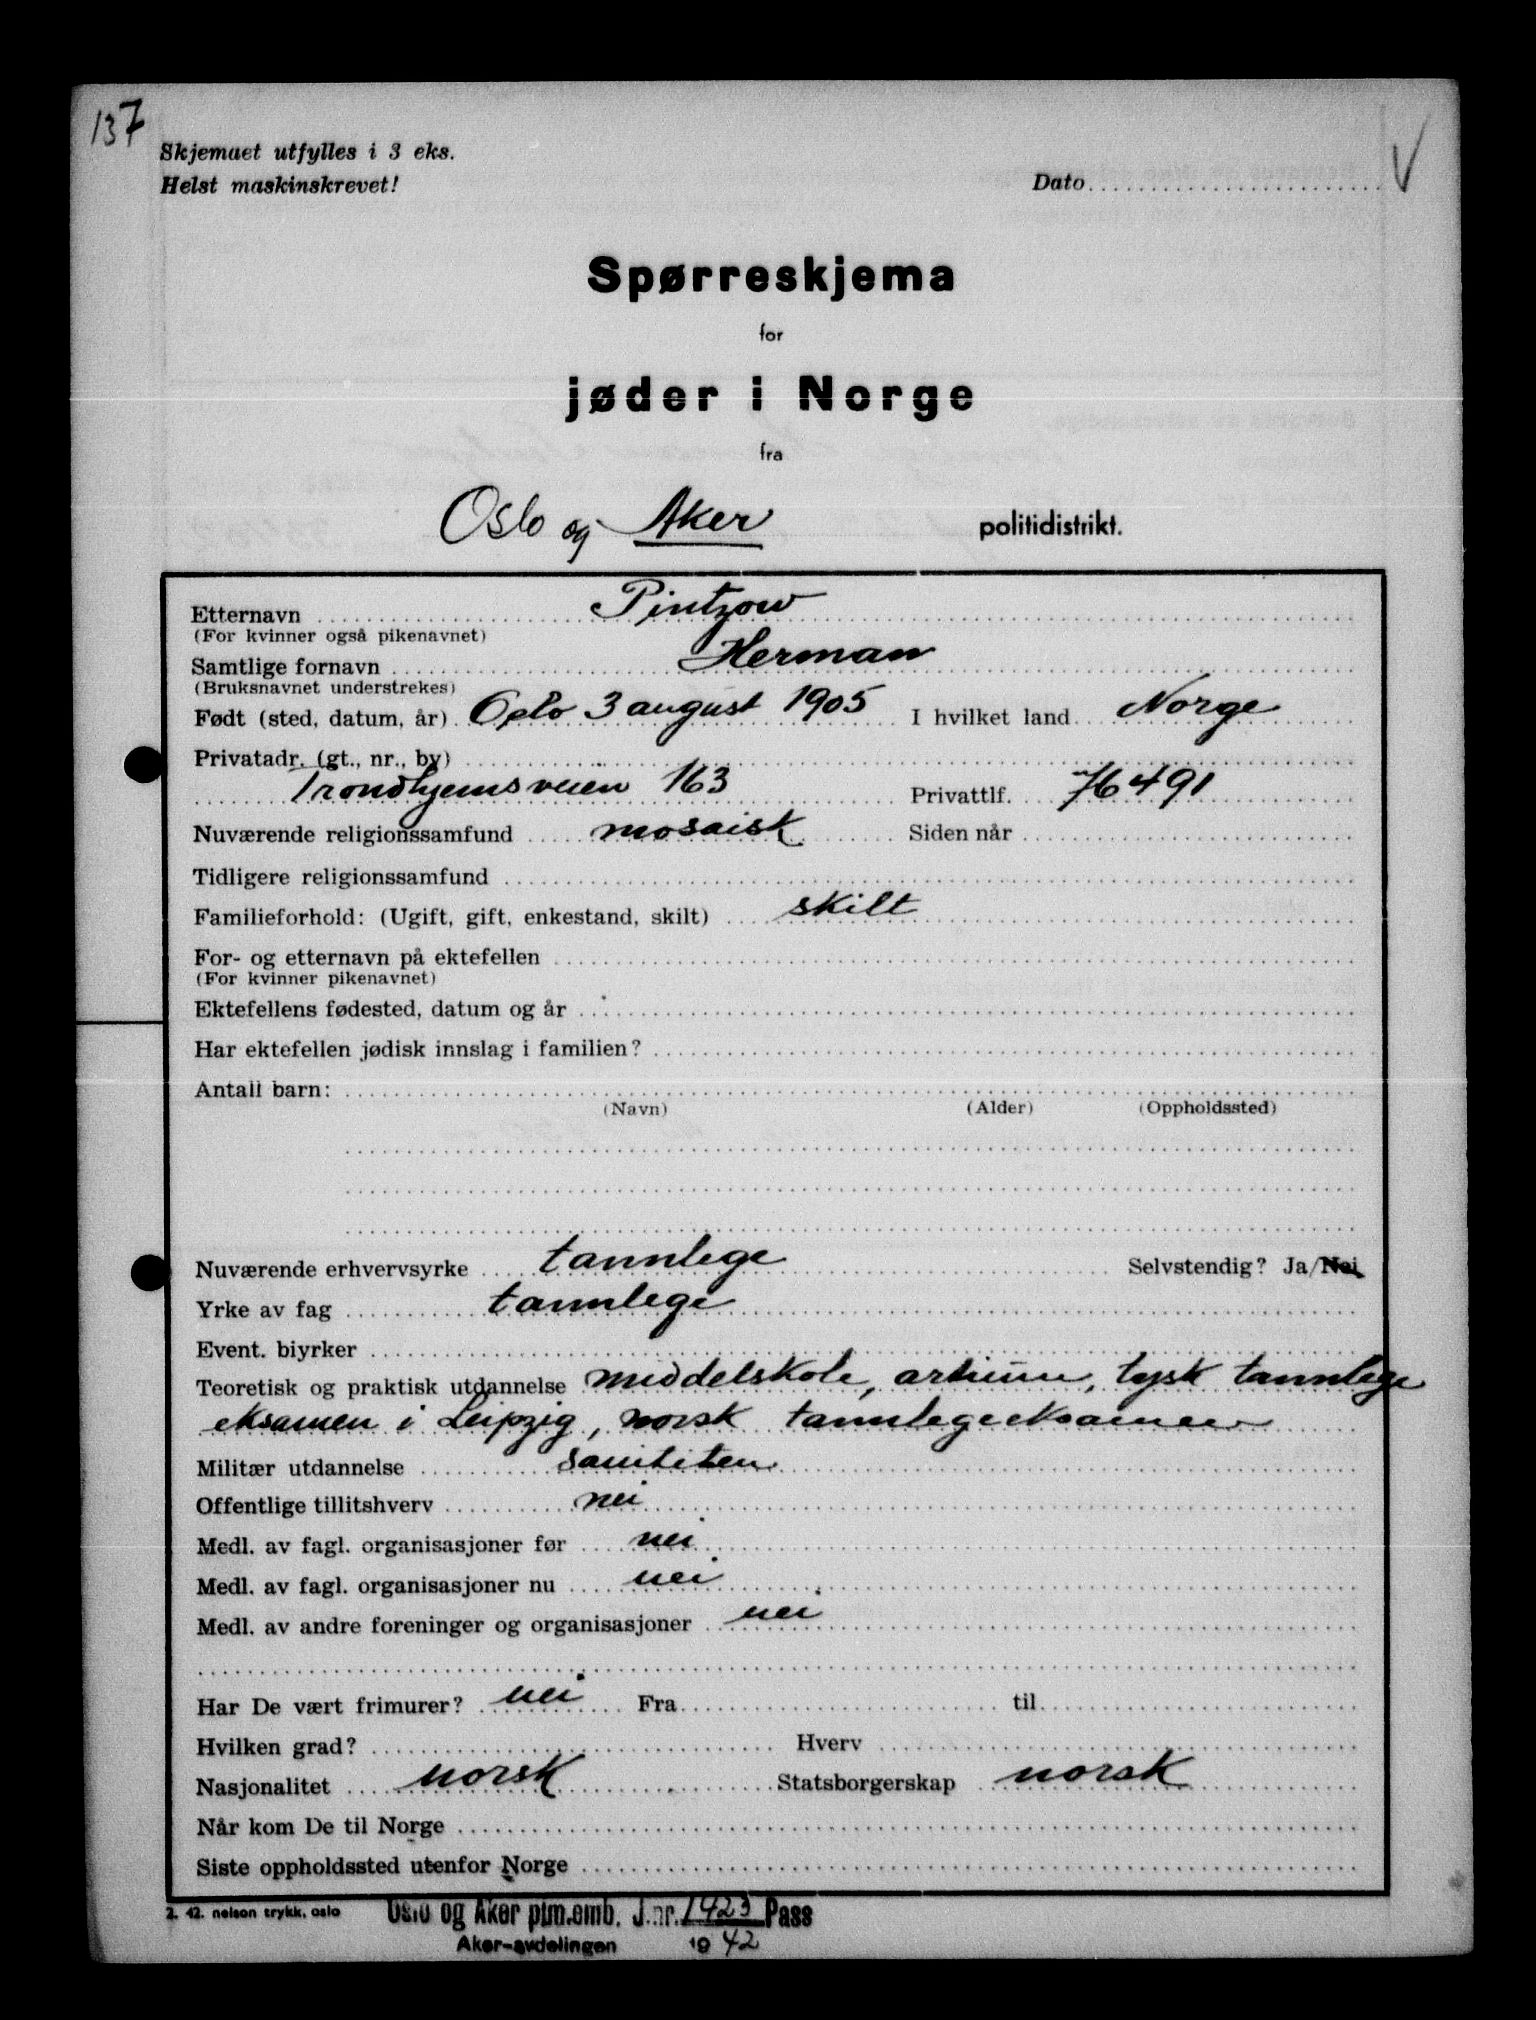 137
Skjemaet utfylles i 3 eks.
Helst maskinskrevet!
Dato
V
Spørreskjema
for
jøder i Norge
fra
Oslo og Aker politidistrikt.
Etternavn Pintzow
(For kvinner også pikenavnet)
Samtlige fornavn Herman
(Bruksnavnet understrekes)
Født (sted, datum, år) Oslo 3 august 1905 I hvilket land Norge
Privatadr. (gt., nr., by)
Trondhjemsveien 163 Privattlf. 76491
Nuværende religionssamfund mosaisk Siden når
Tidligere religionssamfund
Familieforhold: (Ugift, gift, enkestand, skilt) skilt
For- og etternavn på ektefellen
(For kvinner pikenavnet)
Ektefellens fødested, datum og år
Har ektefellen jødisk innslag i familien?
Antall barn:
(Navn) (Alder) (Oppholdssted)
Nuværende erhvervsyrke tannlege Selvstendig? Ja/Nei
Yrke av fag tannlege
Event. biyrker
Teoretisk og praktisk utdannelse middelskole, artium, tysk tannlege
eksamen i Leipzig, norsk tannlegeeksamen
Militær utdannelse saniteten
Offentlige tillitshverv nei
Medl. av fagl. organisasjoner før nei
Medl. av fagl. organisasjoner nu nei
Medl. av andre foreninger og organisasjoner nei
Har De vært frimurer? nei Fra til
Hvilken grad? Hverv
Nasjonalitet norsk Statsborgerskap norsk
Når kom De til Norge
Siste oppholdssted utenfor Norge
2. 42. nelson trykk, oslo
Oslo og Aker plm.emb. J.nr. 1423 Pass
Aker-avdelingen 1942